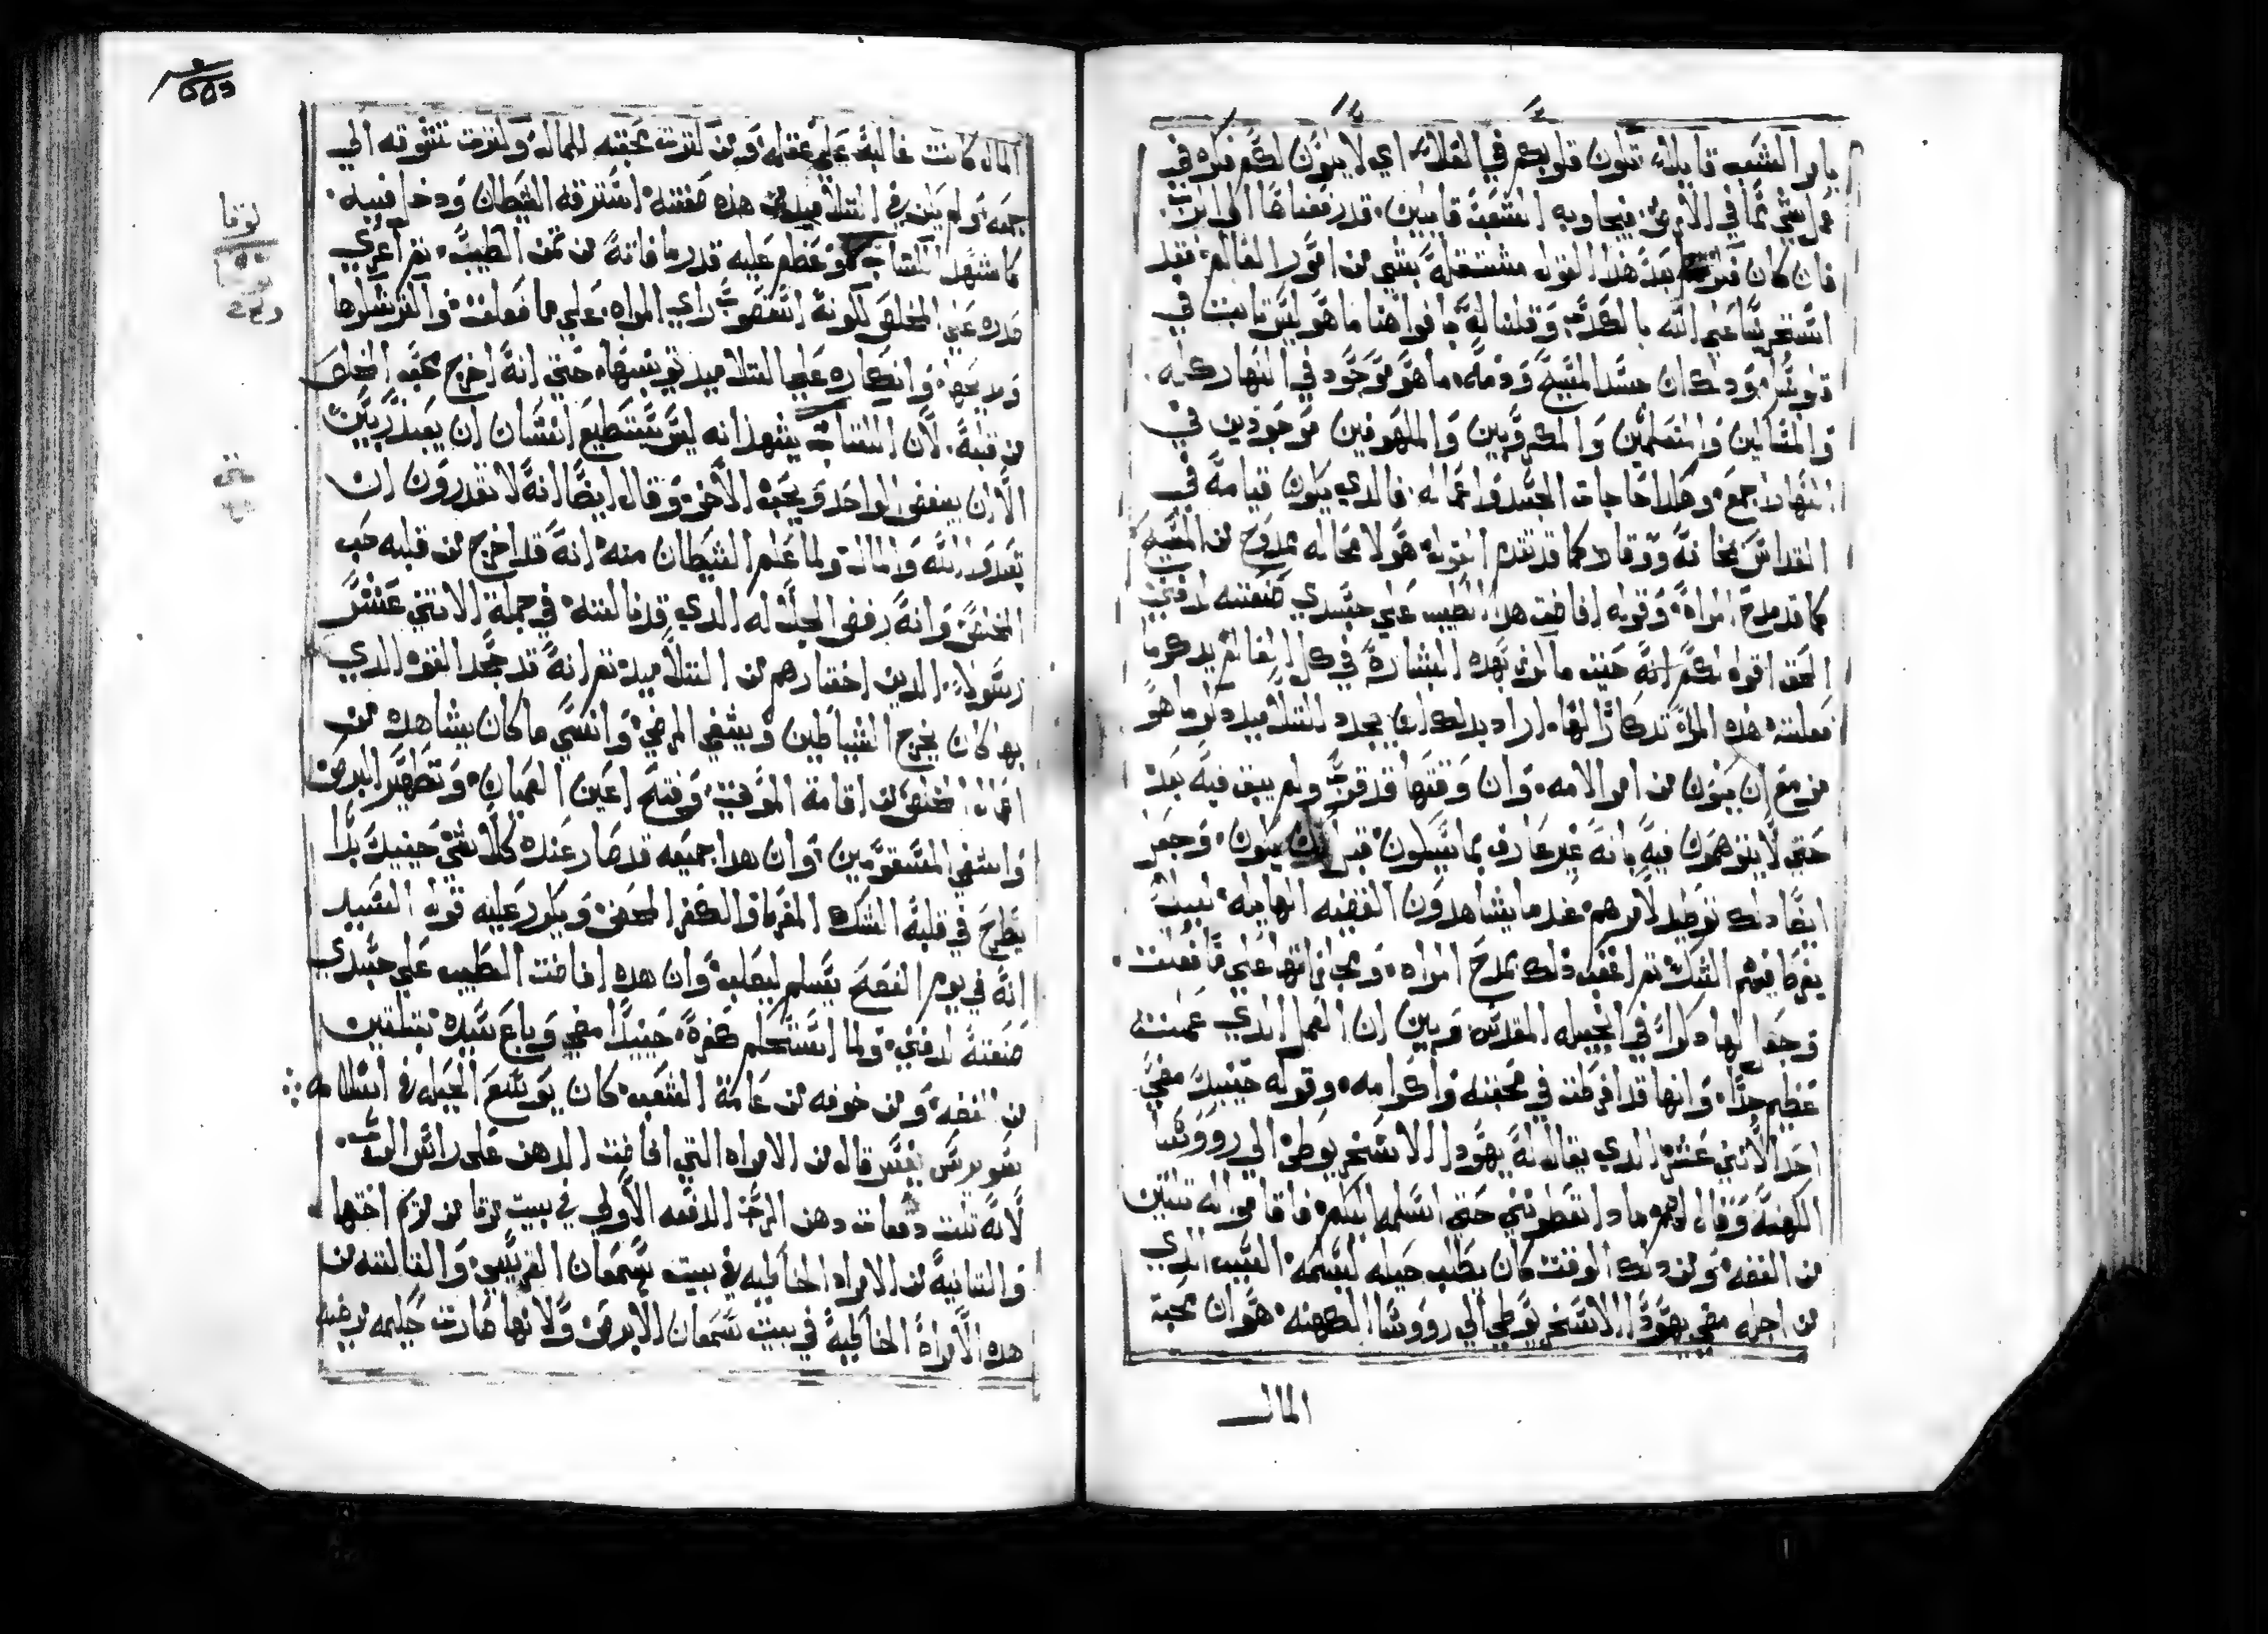 يامر الشعب قايلا تكون قلوبكم في العلا اي لا يكون لكم فكره في
عمل شي مما في الارض فيجاوبه الشعب قايلين قد رفعناها الي الرب
فان كان فكرنا بعد هذا القول مشتغله بشي من امور العالم فقد
استجرينا علي الله بالكدب وقلنا له بافواهنا ما هو ليس تابت في
قلوبنا ودلك ان جسد المسيح ودمه ما هو موجود في النهار كله
والمساكين والمتعلمين والمكروبين والملهوفين موجودين في
النهار اجمع وهكدا حاجات الجسد واعماله فالدي يكون قيامه في
القداس بمخافه ووقار كما قد تقدم القول هو لا محاله ممدوح من المسيح
كما قد مدح المراه وقوله افاضت هدا الطيب علي جسدي صنعته لدفني
الحق اقول لكم انه حيت ما كرز بهده البشاره في كل العالم يدكر ما
فعلته هده المراه تدكارا لها اراد بدلك ان يجدد للتلاميد دكر ما هو
مزمع ان يكون من امر الامه وان وقتها قد قرب ولم يبق فيه بعد
حتي لا يتوهمون فيه بانه غير عارف بما سيكون قبل ان يكون وجعل
ايضا دلك توطيد لامرهم عندما يشاهدون القضيه الهايله لكيلا
يفرط فيهم الشك تم اعقب دلك بمدح المراه ومجازاتها علي ما فعلت
وجعل لها دكرا في انجيله المقدس وبين ان العمل الدي عملته
عظيم جدا وانها قد افرطت في محبته واكرامه وقوله حينيد مضي
احد الاتني عشر الدي يقال له يهودا الاسخريوطي الي رووسا
الكهنه وقال لهم مادا تعطوني حتي اسلمه اليكم فاقاموا له تلتين
من الفضه ومن دلك الوقت كان يطلب حيله ليسلمه السبب الدي
من اجله مضي يهودا الاسخريوطي الي رووسا الكهنه هو ان محبة
المال
المال كانت غالبه علي عقله ومن كترت محبته للمال وكترت شهوته الي
جمعه ولم يكن في التلاميد من هده صفته استرقه الشيطان ودخل فيه
كما شهد الكتاب وعظم عليه قدر ما فاته من تمن الطيب تم اعري
صدره علي المخلص لكونه استصوب راي المراه علي ما فعلت والتر شكرها
ومديحها وانكاره علي التلاميد توبيخها حتي انه اخرج محبة المخلص
من قلبه لان الكتاب يشهد انه ليس يستطيع انسان ان يعبد ربين
الا ان يبغض الواحد ويحب الاخر وقال ايضا انه لا تقدرون ان
تعبدوا الله والمال ولما علم الشيطان منه انه قد اخرج من قلبه حب
المخلص وانه رفض الجلاله الدي قد نالته في جملة الاتني عشر
رسولا الدين اختارهم من التلاميد تم انه قد جحد القوه الدي
بها كان يخرج الشياطين ويشفي المرضي وانسي ما كان يشاهده من
افعال المخلص من اقامة الموتي وفتح اعين العميان وتطهير البرص
واشفي المسقومين وان هدا جميعه قد صار عنده كلا شي حينيد بدا
يطرح في قلبه الشك المفرط والكفر المحض ويكرر عليه قول السيد
انه في يوم الفصح يسلم ليصلب وان هده افاضت الطيب علي جسدي
صنعته لدفني ولما استحكم كفره حينيدا مضي وباع سيده بتلتين
من الفضه ومن خوفه من عامة الشعب كان يوسع الحيله في اسلامه
سويرس يفسر قال من الامراه التي افاضت الدهن علي راس الرب
لانه تلت دفعات دهن الرب الدفعه الاولي في بيت مرتا من مريم اختها
والتانيه من الامراه الخاطيه في بيت سمعان الفريسي والتالته من
هده الامراه الخاطيه في بيت سمعان الابرص ولانها صارت حكيمه مرضيه
لوقا
متي